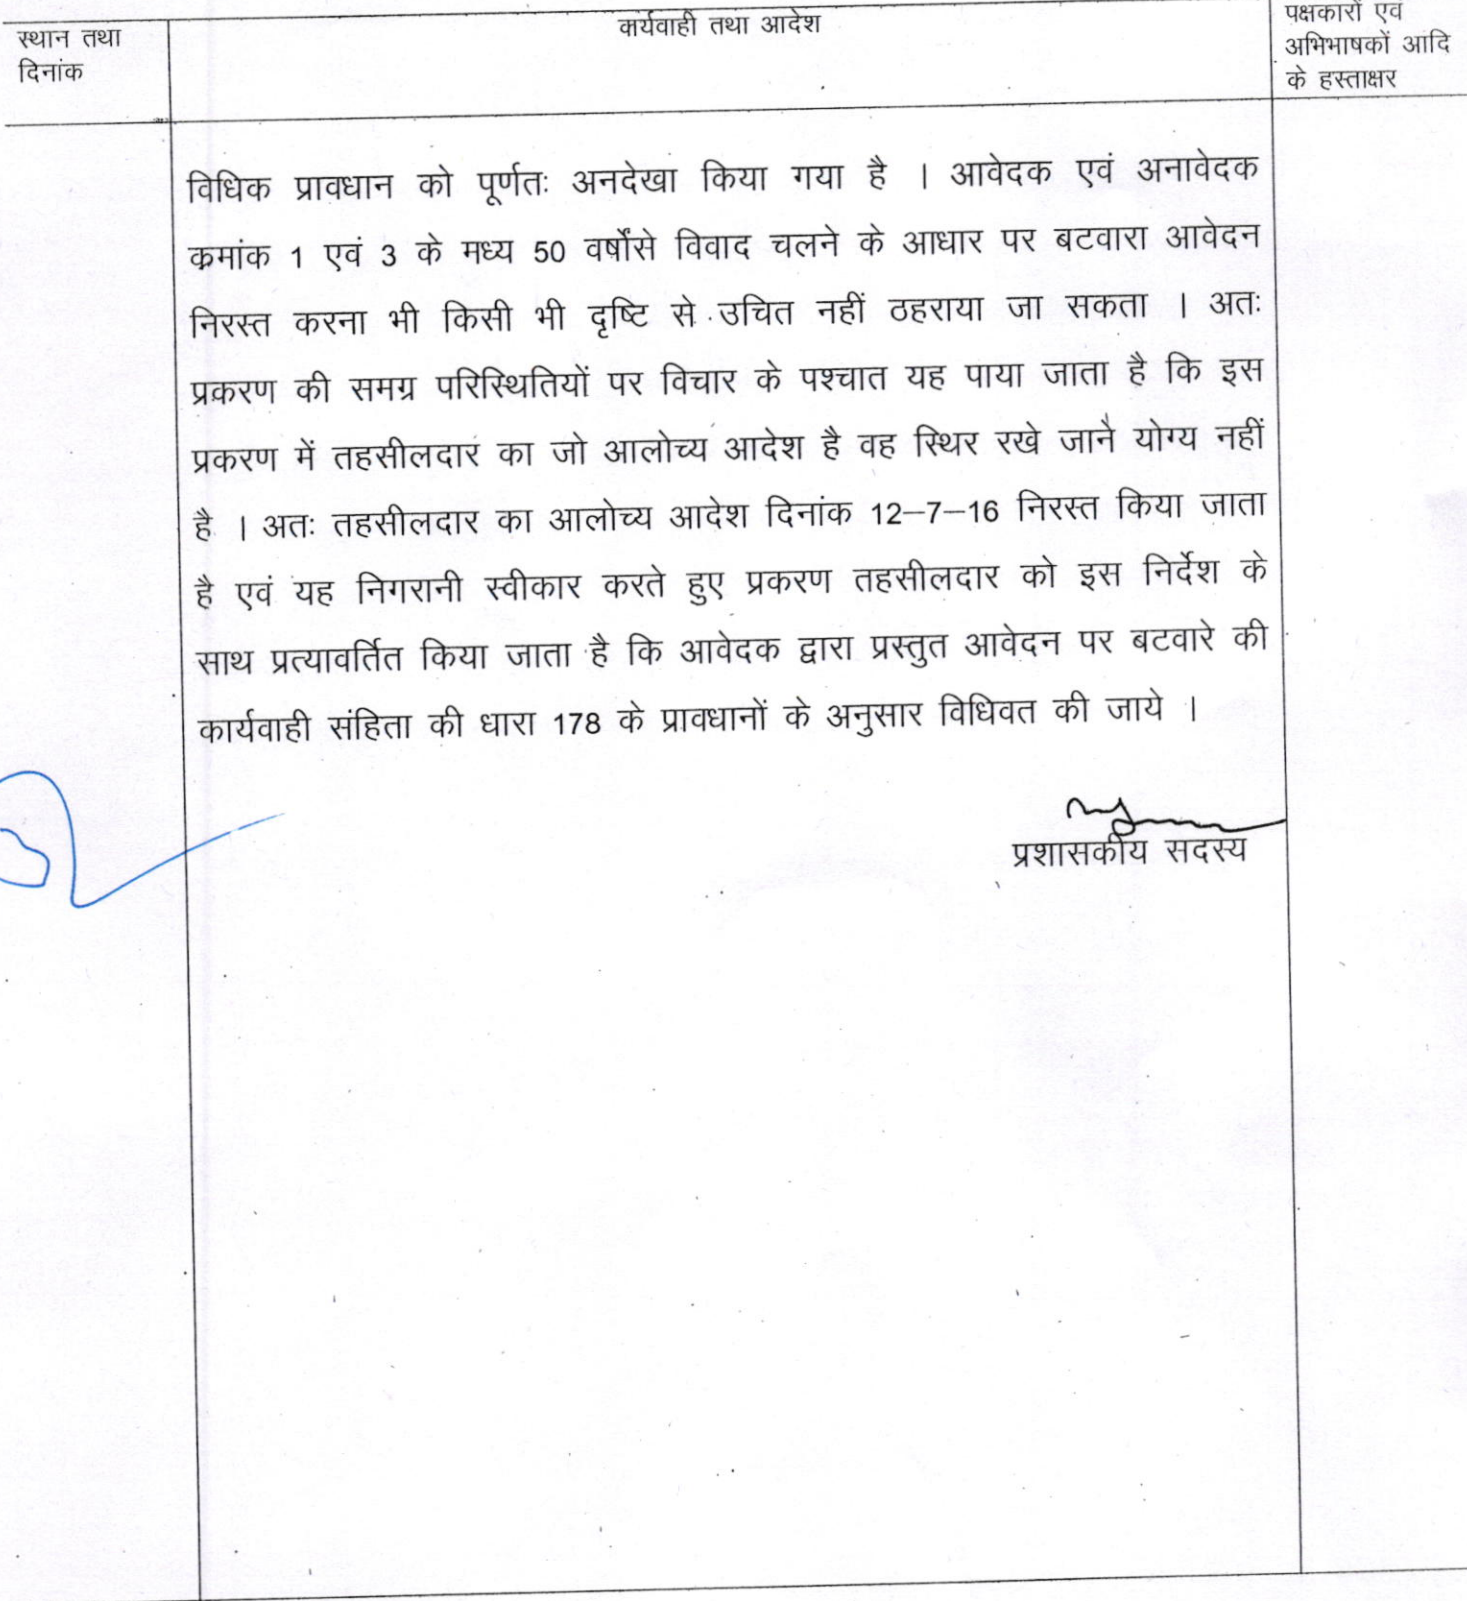 स्थान तथा
दिनांक
कार्यवाही तथा आदेश
पक्षकारों एवं
अभिभाषकों आदि
के हस्ताक्षर
विधिक प्रावधान को पूर्णतः अनदेखा किया गया है । आवेदक एवं अनावेदक
क्रमांक 1 एवं 3 के मध्य 50 वर्षोंसे विवाद चलने के आधार पर बटवारा आवेदन
निरस्त करना भी किसी भी दृष्टि से उचित नहीं ठहराया जा सकता । अतः
प्रकरण की समग्र परिस्थितियों पर विचार के पश्चात यह पाया जाता है कि इस
प्रकरण में तहसीलदार का जो आलोच्य आदेश है वह स्थिर रखे जाने योग्य नहीं
है । अतः तहसीलदार का आलोच्य आदेश दिनांक 12–7–16 निरस्त किया जाता
है एवं यह निगरानी स्वीकार करते हुए प्रकरण तहसीलदार को इस निर्देश के
साथ प्रत्यावर्तित किया जाता है कि आवेदक द्वारा प्रस्तुत आवेदन पर बटवारे की
कार्यवाही संहिता की धारा 178 के प्रावधानों के अनुसार विधिवत की जाये ।
प्रशासकीय सदस्य